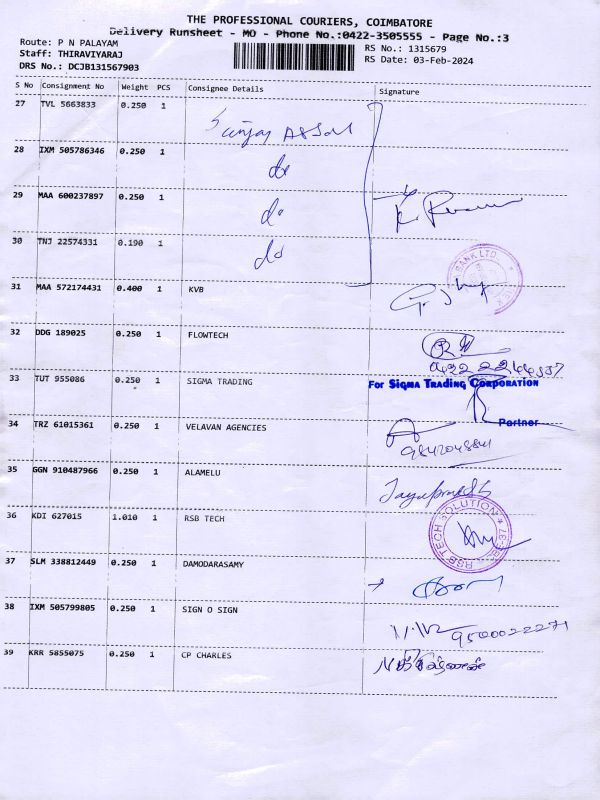 THE PROFESSIONAL COURIERS, COIMBATORE
Delivery Runsheet - MO - Phone No.:0422-3505555 - Page No.:3
Route: P N PALAYAM RS No.: 1315679
Staff: THIRAVIYARAJ RS Date: 03-Feb-2024
DRS No.: DCJB131567903
S No Consignment No Weight PCS Consignee Details Signature
27 TVL 5663833 0.250 1
28 IXM 505786346 0.250 1 do
29 MAA 600237897 0.250 1 do
30 TNJ 22574331 0.190 1 do
BANK LTD.
31 MAA 572174431 0.400 1 KVB
32 DDG 189025 0.250 1 FLOWTECH
33 TUT 955086 0.250 1 SIGMA TRADING For SIGMA TRADING CORPORATION
Partner
34 TRZ 61015361 0.250 1 VELAVAN AGENCIES
35 GGN 910487966 0.250 1 ALAMELU
36 KDI 627015 1.010 1 RSB TECH RSB TECH SOLUTION
37 SLM 338812449 0.250 1 DAMODARASAMY
38 IXM 505799805 0.250 1 SIGN O SIGN 9500022271
39 KRR 5855075 0.250 1 CP CHARLES